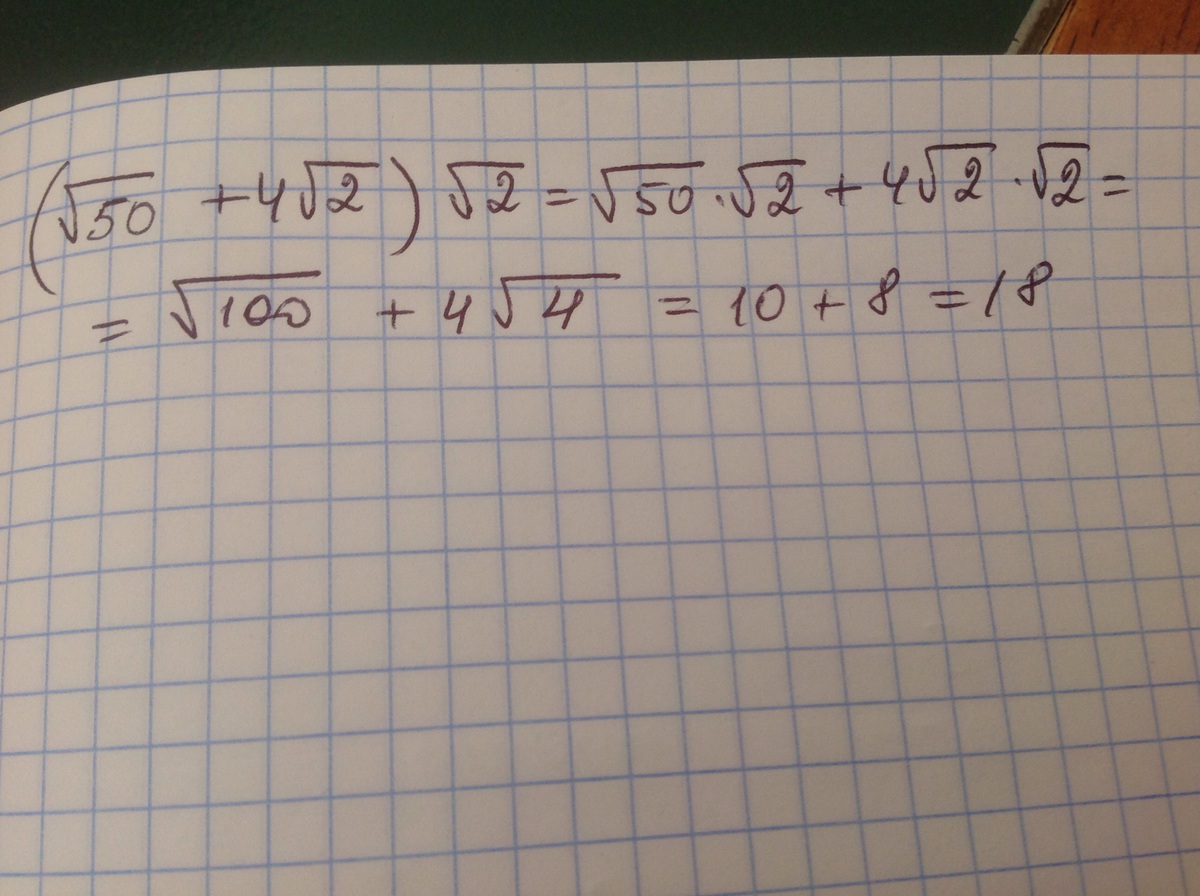 (√50 + 4√2) √2 = √50 · √2 + 4√2 · √2 =
= √100 + 4√4 = 10 + 8 = 18